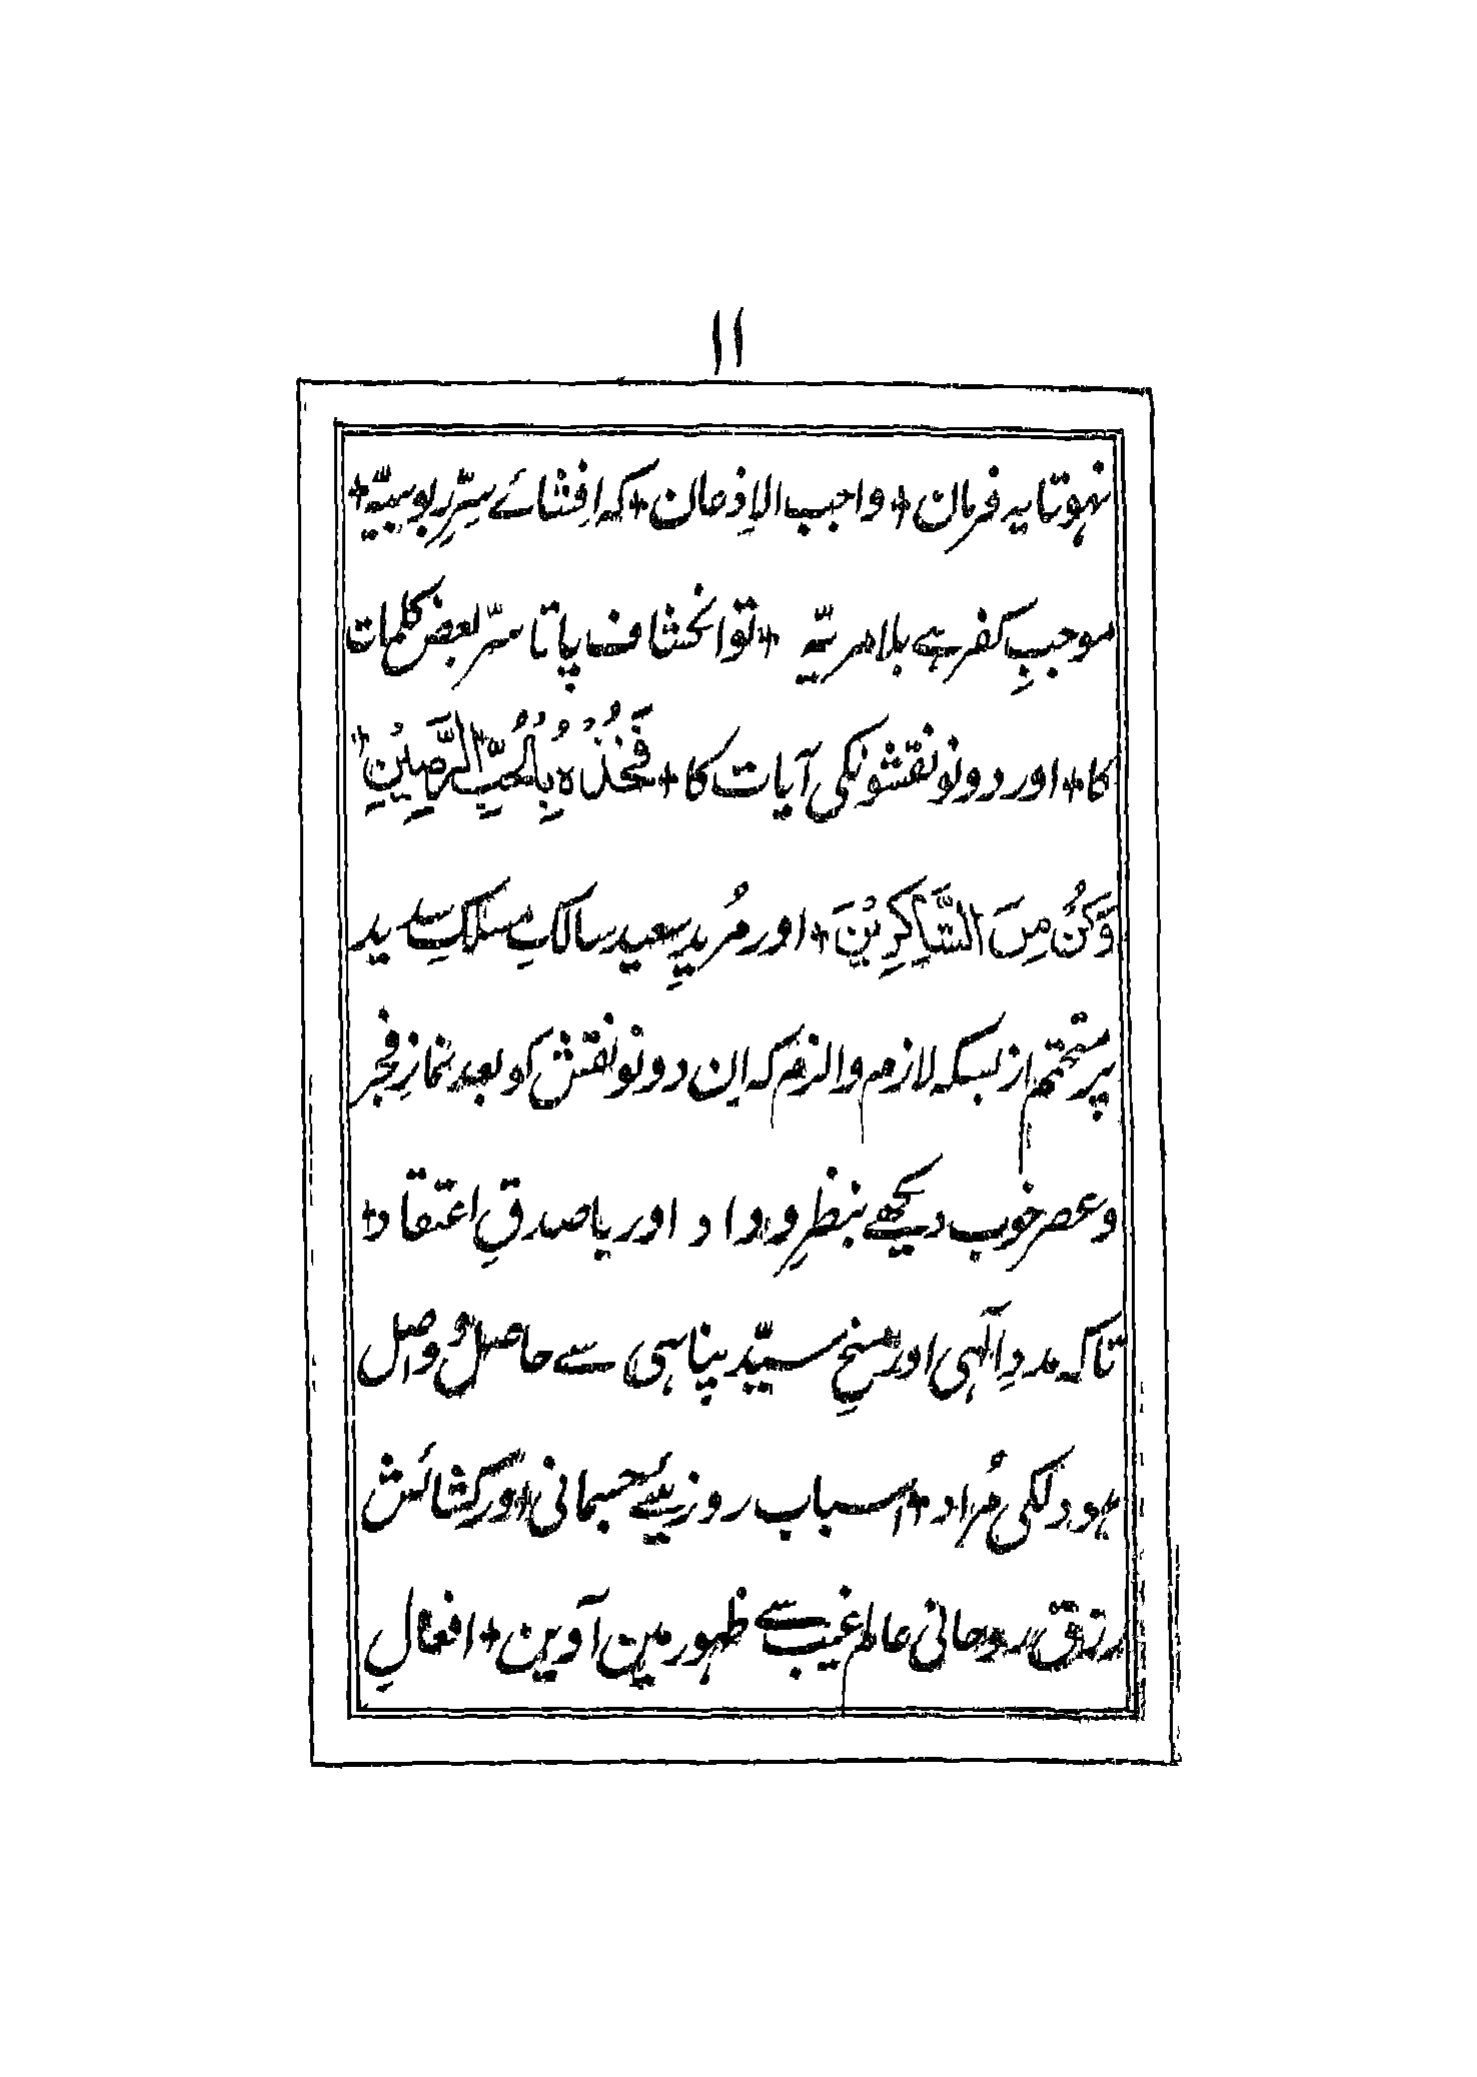 ۱۱
نہوتا یہ فرمان + واجب الاِذعان + کہ اِفشائے سِرِّ ربوبیّہ +
موجبِ کفر ہے بلا مریّہ + تو انکشاف پاتا سرّ بعض کلمات
کا + اور دونو نقشونکی آیات کا + فَخُذْهُ بِالْحُبِّ الرَّصِیْنِ
وَکُنْ مِنَ الشَّاکِرِیْنَ + اور مُریدِ سعید سالکِ مسلکِ سدید
پر متحتم از بسکہ لازم و الزم کہ اِن دونو نقش کو بعد نمازِ فجر
و عصر خوب دیکھے بنظرِ و وداد اور باصدقِ اعتقاد +
تاکہ مددِ اِلٰہی اور منحِ سیّد پناہی سے حاصل و واصل
ہو دلکی مُراد + اسباب روزیئے جسمانی اور کشائش
رزق روحانی عالم غیب سے ظہور مین آوین + افعالِ